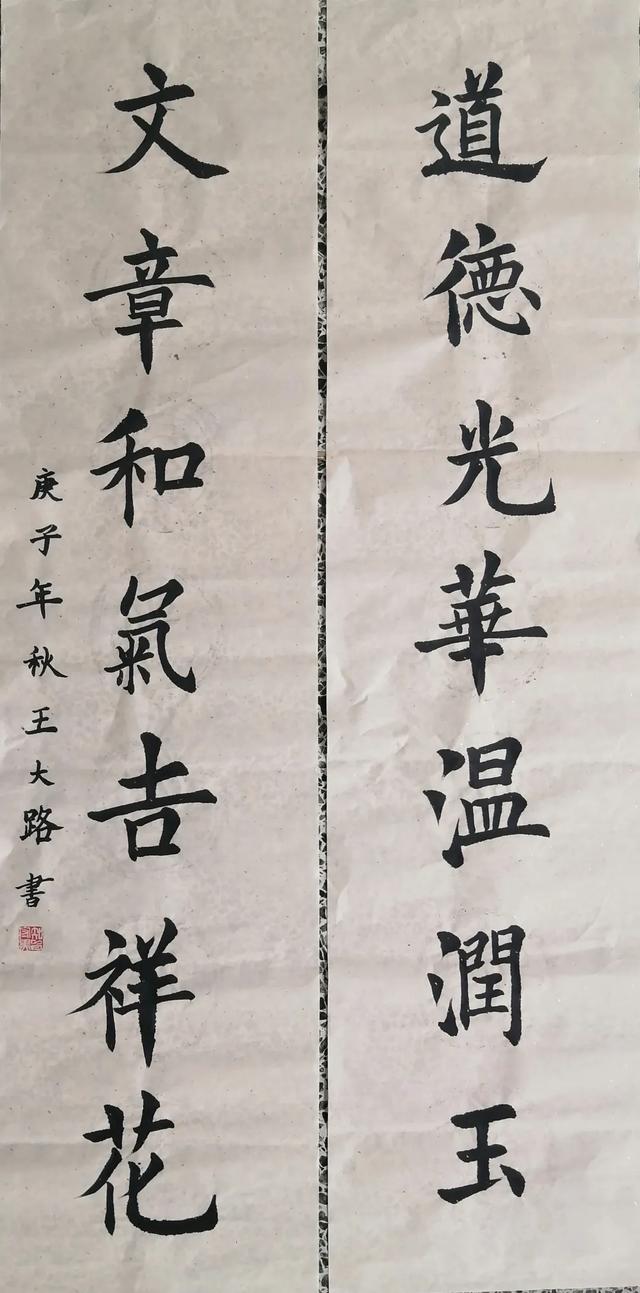 道德光華温潤玉
文章和氣吉祥花
庚子年秋王大路書